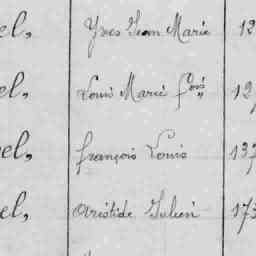 el, Yves Jean Marie 12
el, Louis Marie Fois 127
el, François Louis 137
el, Aristide Julien 173